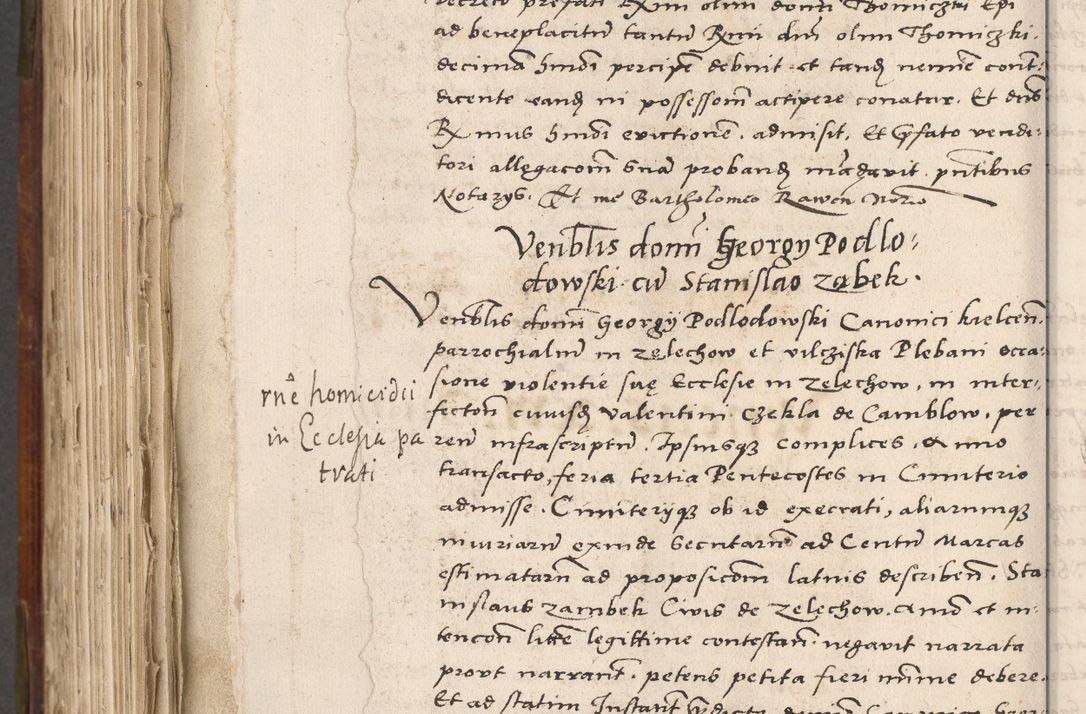 decreto prefati Rxmi olim domi Thomiczki Epi
ad beneplacitu tantu Rxmi dni olim Thomiczki.
decima hmoi percipe debuit et tandz nemine cont:
dicente eandz in possessom actipere conatur. Et dns
Rxmus hmoi evictione. admisit, Et pfato vendi:
tori allegacom sua probandz madavit. pntibus
Notarys. Et me Bartholomeo Rawen Norio
Venblis domi Georgy Podlo:
dowski cu Stanislao zabek.
Venblis domi Georgy Podlodowski Canonici kielcen.
parrochialiu in zelechow et vilcziska Plebani occa:
sione violentie sue Ecclesie in zelechow, in inter:
fectōn cuiusdz valentini Czekla de Camblow. per
reu infrascriptu. Ipsiusqz complices. Anno
transacto, feria tertia Pentecostes in Cimiterio
admisse. Cimiteryqz ob id execrati, aliarumqz
iniuriaru exinde secutaru ad Centu Marcas
estimataru ad proposicom latius describen. Sta
nislaus zambek Civis de zelechow. Amo et in:
tencon lite legittime contestan. negavit narrata
prout narrant. petens petita fieri mime debere.
Et ad statim Instant pdicto
rne homicidii
in Ecclesia pa
trati